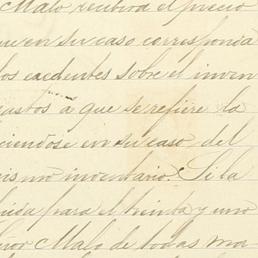 Malo recibirá el precio
que en su caso corresponda
los excedentes sobre el inven
gastos a que se refiere la
ciendose en su caso del
ismo inventario. Si la
para el treinta y uno
Malo de todas ma